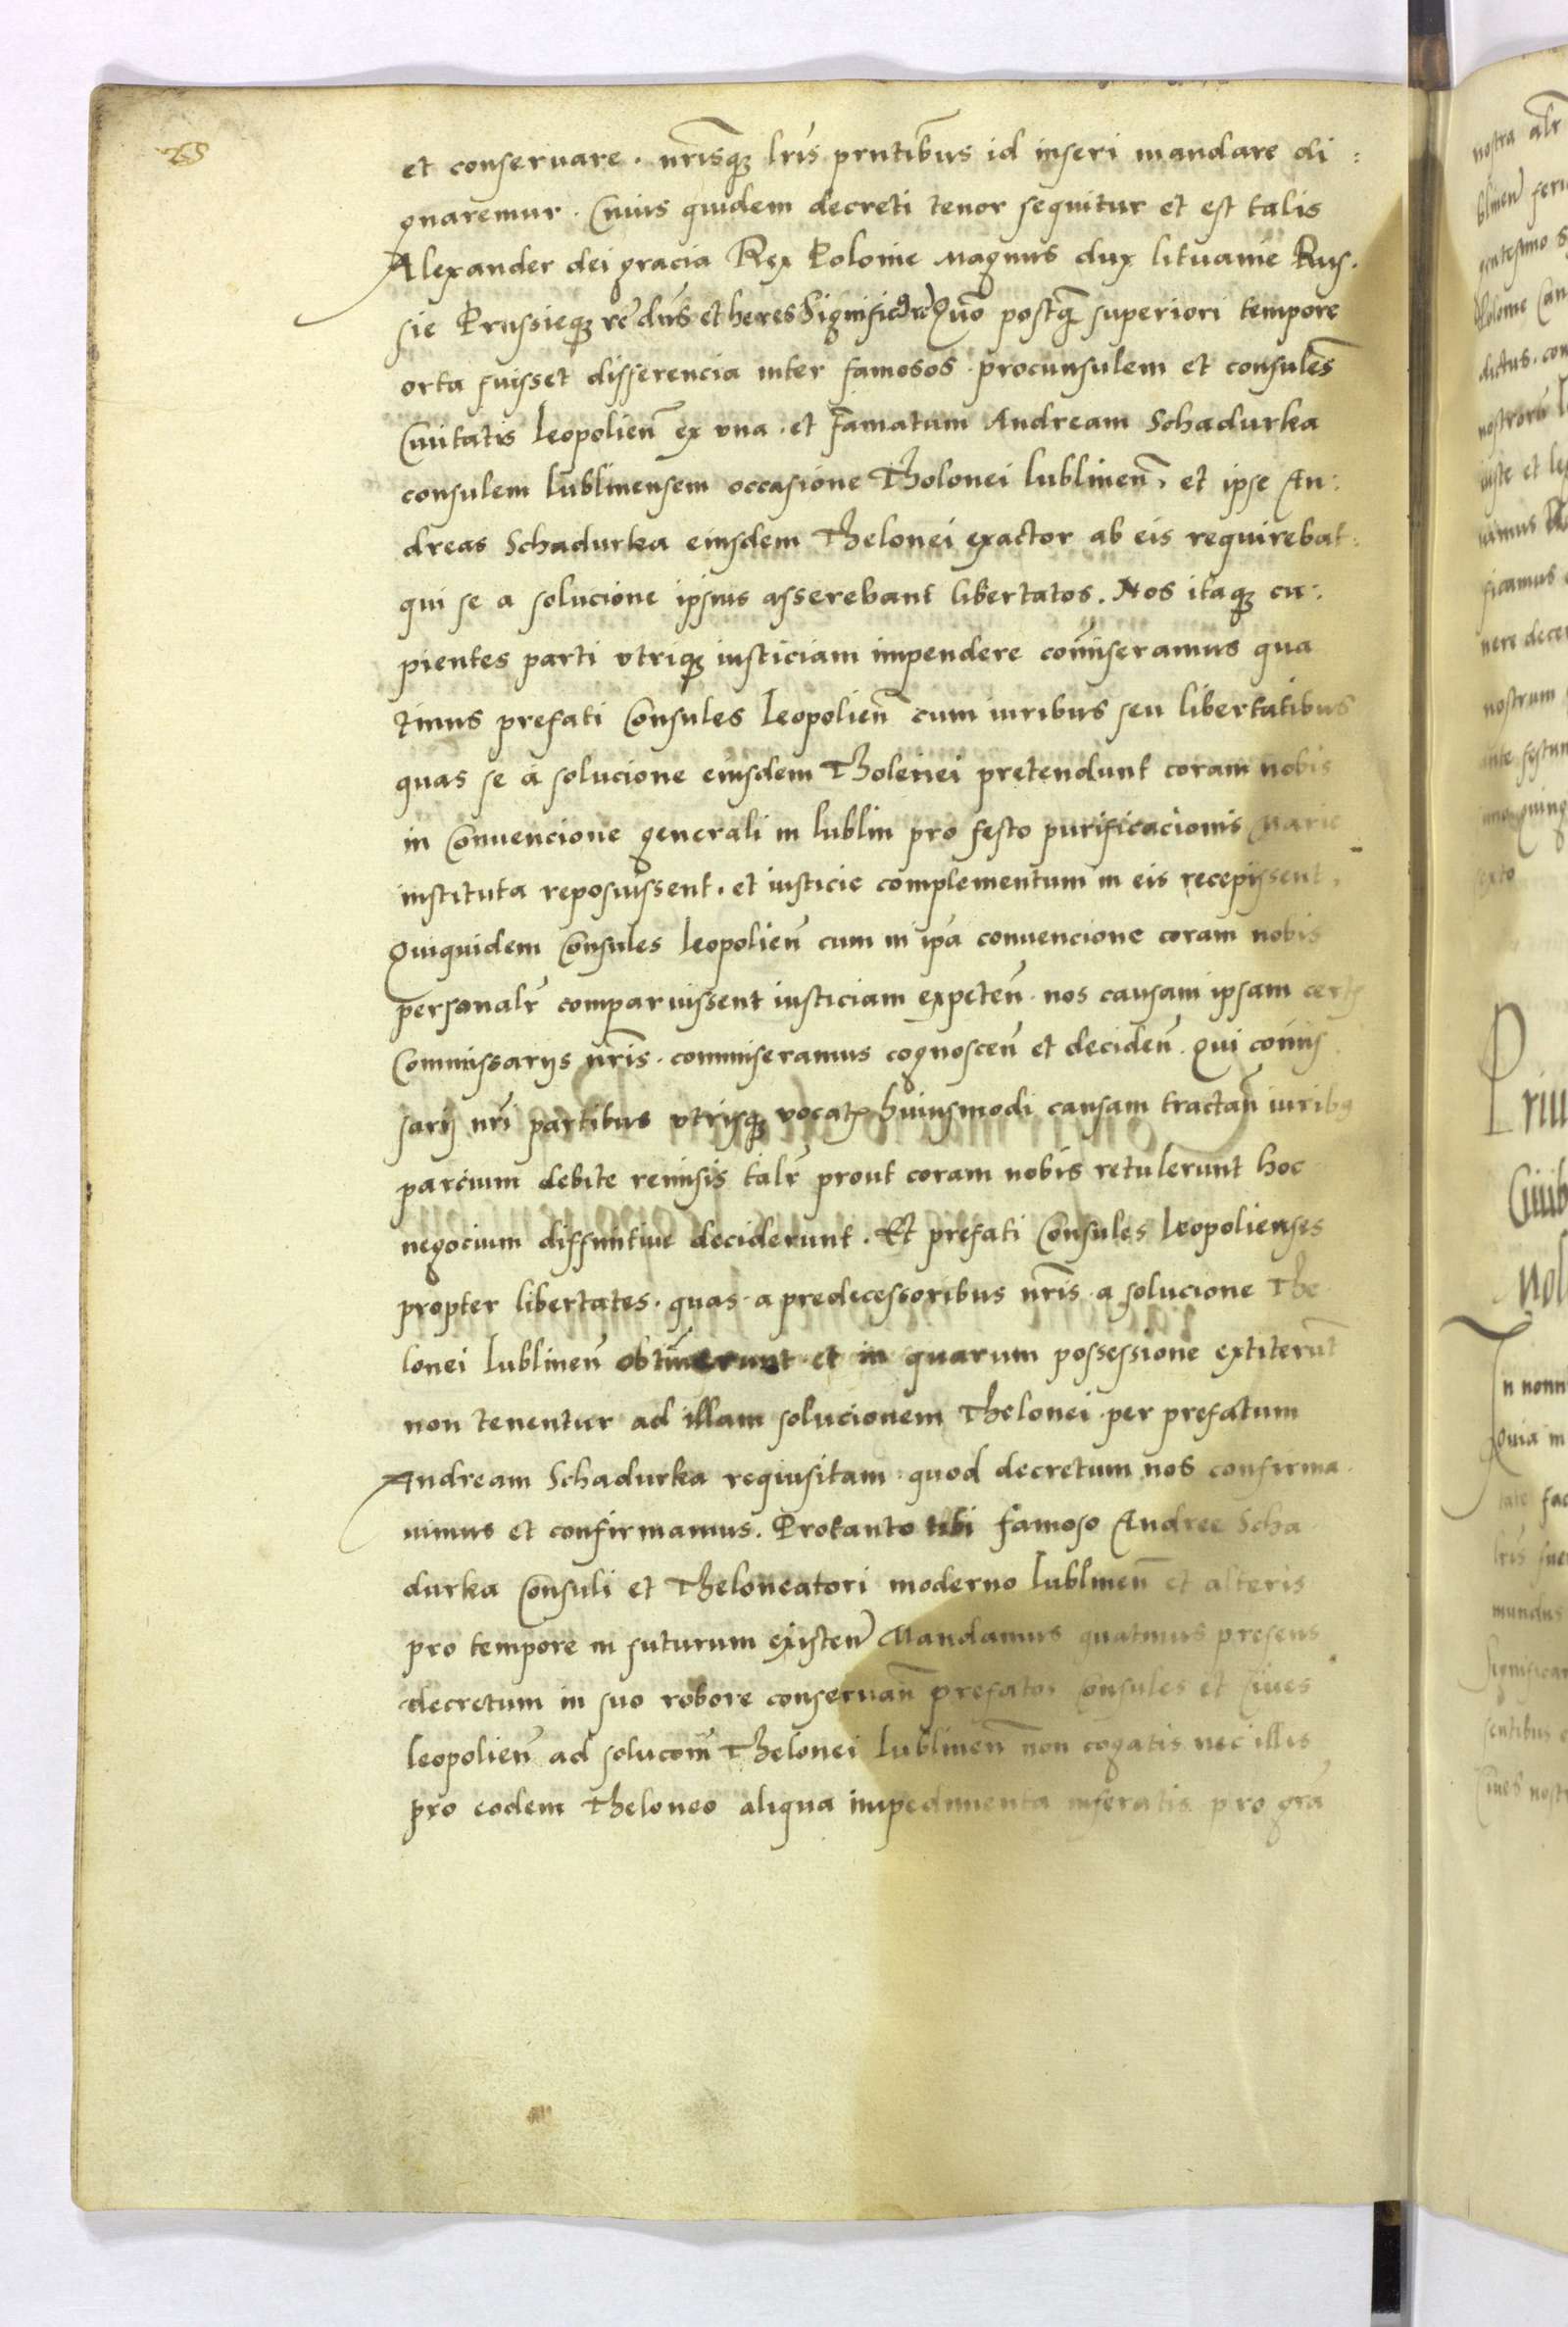 et conseruare . nr̃isqꝫ lr̃is pr̃ntibus id inseri mandare di :
gnaremur . Cuius quidem decreti tenor sequitur et est talis
Alexander dei gracia Rex Polonie Magnus dux lituanie Rus .
sie Prussieqꝫ rc̃ dñs et heres Significãꝰ rc̃ Quõ postq̃ superiori tempore
orta fuisset differencia inter famosos . procunsulem et consules
Ciuitatis leopolien̄ ex vna . et famatum Andream Schadurka
consulem lublinensem occasione Tholonei lublinen̄ . et ipse An :
dreas Schadurka eiusdem Thelonei exactor ab eis requirebat :
qui se a solucione ipsius asserebant libertatos . Nos itaqꝫ cu :
pientes parti vtriqꝫ iusticiam impendere com̄iseramus qua
tinus prefati Consules leopolien̄ cum iuribus seu libertatibus
quas se a solucione eiusdem Tholenei pretendunt coram nobis
in Conuencione generali in lublin pro festo purificacionis Marie
instituta reposuissent . et iusticie complementum in eis recepissent .
Quiquidem Consules leopolien̄ cum in ip̄a conuencione coram nobis
personalr̃ comparuissent iusticiam expeten̄ . nos causam ipsam certꝫ
Commissarijs nr̃is . commiseramus cognoscen̄ et deciden̄ . Qui com̄is
sarij nr̃i partibus vtrisqꝫ vocatꝫ huiusmodi causam tractan̄ iuribꝰ
parcium debite reuisis talr̃ prout coram nobis retulerunt hoc
negocium diffinitiue deciderunt . Et prefati Consules leopolienses
propter libertates . quas . a predecessoribus nr̃is . a solucione The
lonei lublinen̄ obtinuerunt . et in quarum possessione extiterūt
non tenentur ad illam solucionem Thelonei . per prefatum
Andream Schadurka requisitam . quod decretum nos confirma .
uimus et confirmamus . Protanto tibi famoso Andree Scha
durka Consuli et Theloneatori moderno lublinen̄ et alteris
pro tempore in futurum existen̄ Mandamus quatinus presens
decretum in suo robore conseruan̄ prefatos Consules et Ciues
leopolien̄ ad solucom̄ Thelonei lublinen̄ non cogatis nec illis
pro eodem Theloneo aliqua impedimenta inferatis pro grã
nostra alr̃
blinen̄ feri
gentesimo
Polonie Can
dictus . con
nostrorū
iuste et le
ficamus
nere decer
nostrum
ante festum
quing
sexto
Priui
Ciuib
nol
In nomi
Quia in
tate fac
lr̃is
mundus
Significam
sentibus
Ciues nostr